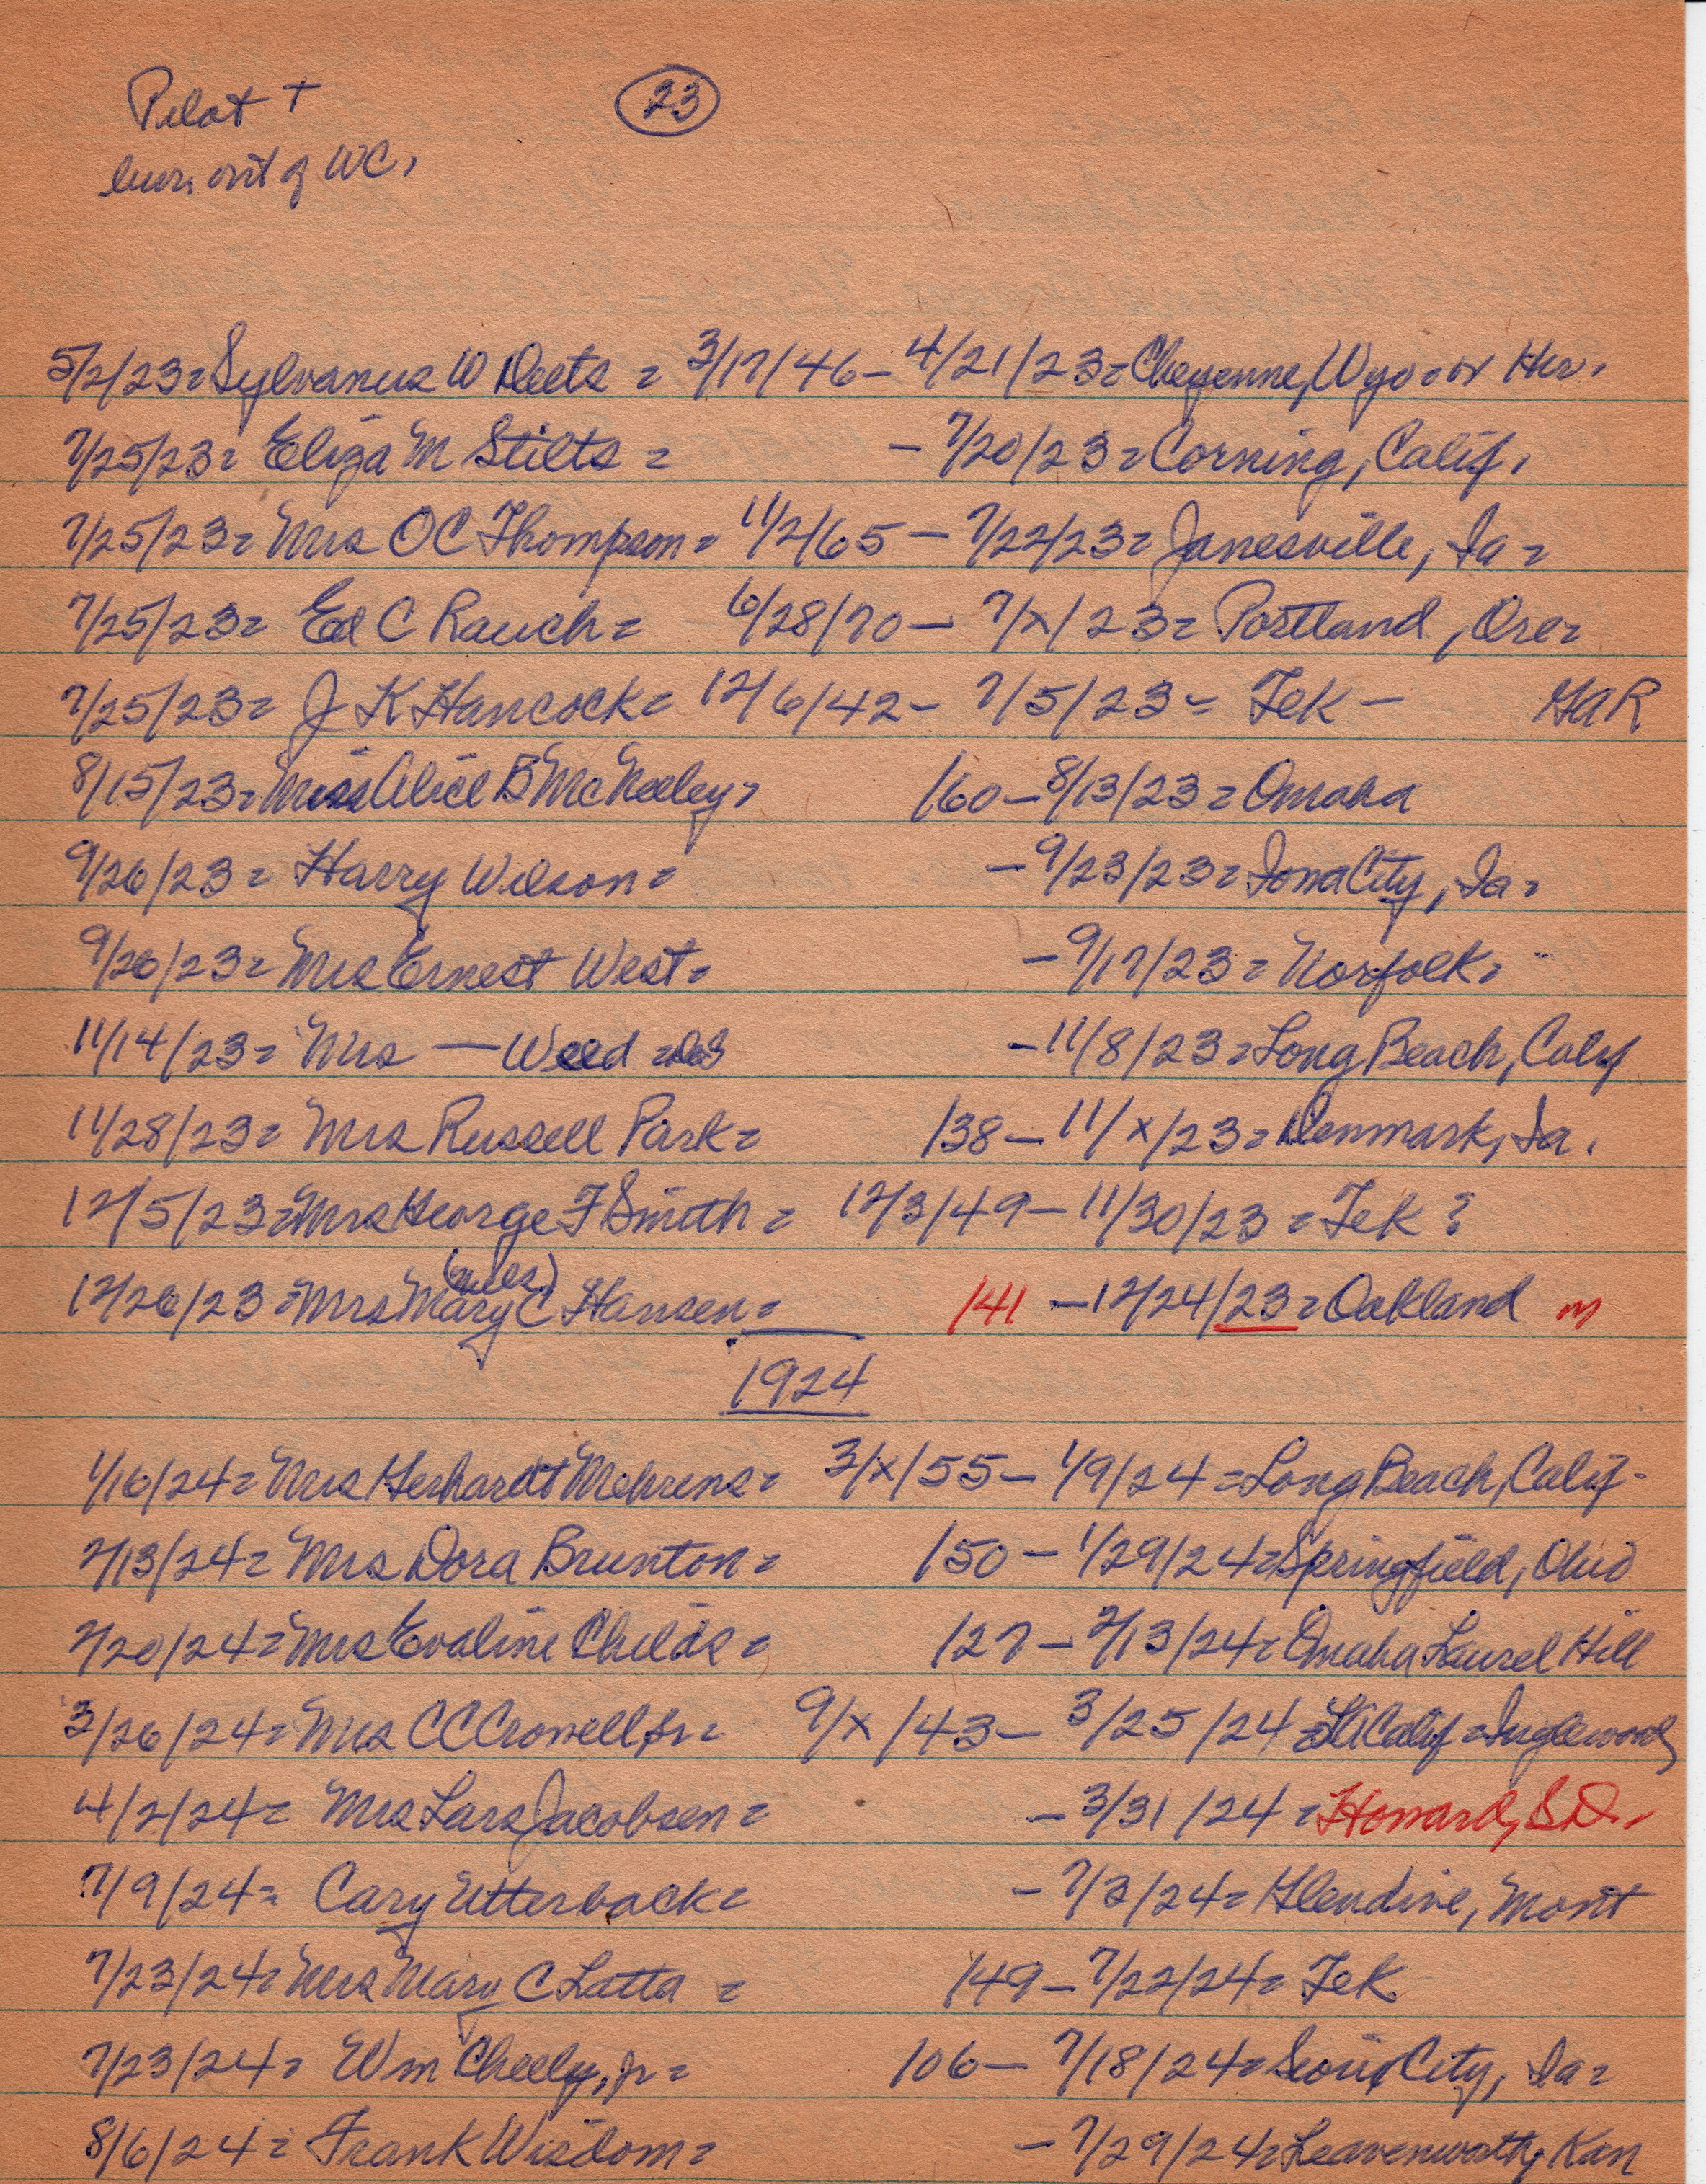 Pilot +
23
bur. out of WC.
5/2/23 = Sylvanus W Deets = 3/17/46 - 4/21/23 = Cheyenne, Wyo = or
7/25/23 = Eliza M Stilts = - 7/20/23 = Corning, Calif.
7/25/23 = Mrs OC Thompson = 11/2/65 - 7/22/23 = Janesville, Ia =
7/25/23 = Ed C Rauch = 6/28/70 - 7/x/23 = Portland, Ore =
7/25/23 = J K Hancock = 12/6/42 - 7/5/23 = Tek - GAR
8/15/23 = Miss Alice B McNeeley = /60 - 8/13/23 = Omaha
9/26/23 = Harry Wilson = - 9/23/23 = Iowa City, Ia =
9/26/23 = Mrs Ernest West = - 9/17/23 = Norfolk =
11/14/23 = Mrs — Weed = - 11/8/23 = Long Beach, Calif
11/28/23 = Mrs Russell Park = /38 - 11/x/23 = Denmark, Ia.
12/5/23 = Mrs George F Smith = 12/3/49 - 11/30/23 = Tek ?
12/26/23 = Mrs Mary C Hansen = /41 - 12/24/23 = Oakland m
1924
1/16/24 = Mrs Gerhardt Mehrens = 3/x/55 - 1/9/24 = Long Beach, Calif -
2/13/24 = Mrs Dora Brunton = /50 - 1/29/24 = Springfield, Ohio
2/20/24 = Mrs Evaline Childs = /27 - 2/13/24 = Omaha Laurel Hill
3/26/24 = Mrs CC Crowell Sr = 9/x/43 - 3/25/24 = Calif = Inglewood
4/2/24 = Mrs Lars Jacobsen = - 3/31/24 = Howard, S.D.
7/9/24 = Cary Utterback = - 7/3/24 = Glendive, Mont
7/23/24 = Mrs Mary C Latta = /49 - 7/22/24 = Tek
7/23/24 = Wm Cheely, Jr = /06 - 7/18/24 = Sioux City, Ia =
8/6/24 = Frank Wisdom = - 7/29/24 = Leavenworth, Kan